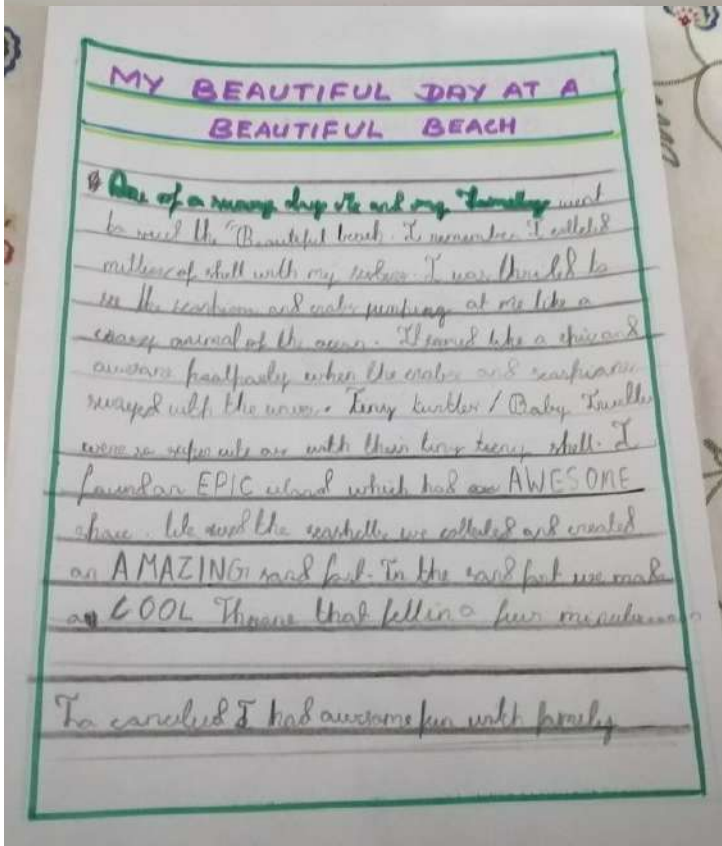 MY BEAUTIFUL DAY AT A
BEAUTIFUL BEACH
One of a sunny day Me and my family went
to the Beautiful beach. I remember I colleted
millions of shell with my I was thrilled to
see the and crabs jumping at me like a
animal of the ocean. It like a epic and
awesome when the crabs and
swayed with the waves. Teny turtles / Baby
were so super cute with their tiny teeny shell. I
found an EPIC island which had AWESOME
We used the seashells we colleted and created
an AMAZING sand fort. In the sand fort we made
a COOL Throne that fell in a few minutes
To conclued I had awesome fun with family